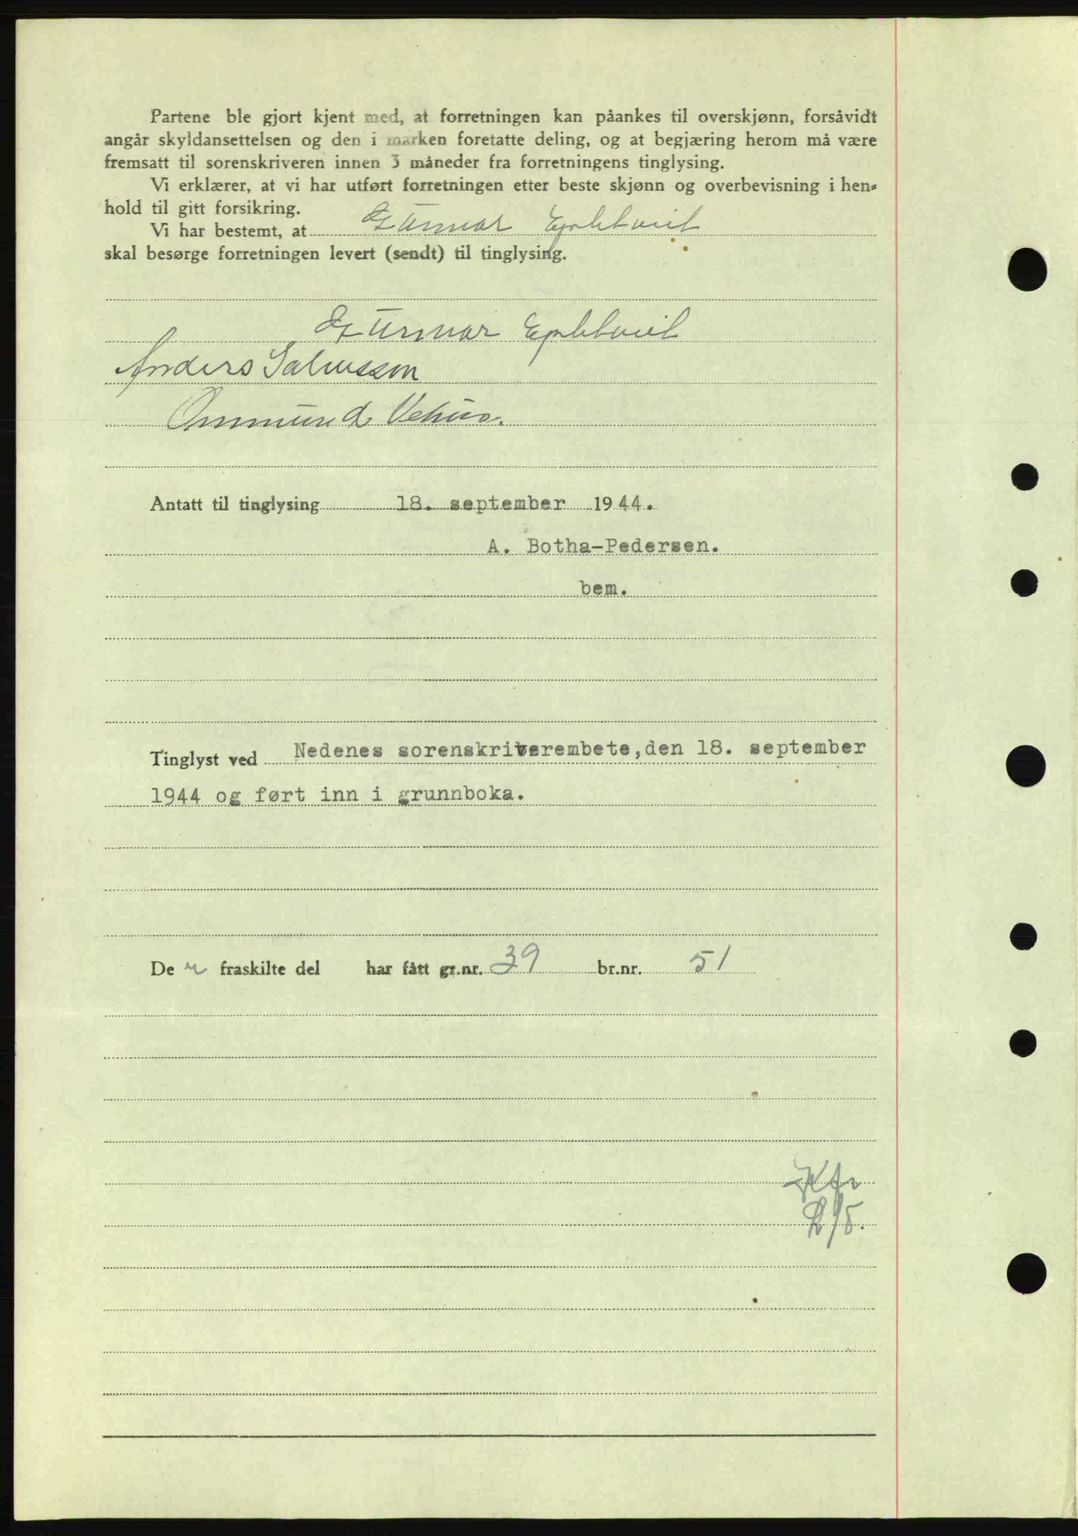 Partene ble gjort kjent med, at forretningen kan påankes til overskjønn, forsåvidt
angår skyldansettelsen og den i marken foretatte deling, og at begjæring herom må være
fremsatt til sorenskriveren innen 3 måneder fra forretningens tinglysing.
Vi erklærer, at vi har utført forretningen etter beste skjønn og overbevisning i hen-
hold til gitt forsikring.
Vi har bestemt, at Gunnar Epletveit
skal besørge forretningen levert (sendt) til tinglysing.
Gunnar Epletveit
Anders Salvesson
Ommund Vehus.
Antatt til tinglysing 18. september 1944.
A. Botha-Pedersen.
bem.
Tinglyst ved Nedenes sorenskriverembete, den 18. september
1944 og ført inn i grunnboka.
De n fraskilte del har fått gr.nr. 39 br.nr. 51